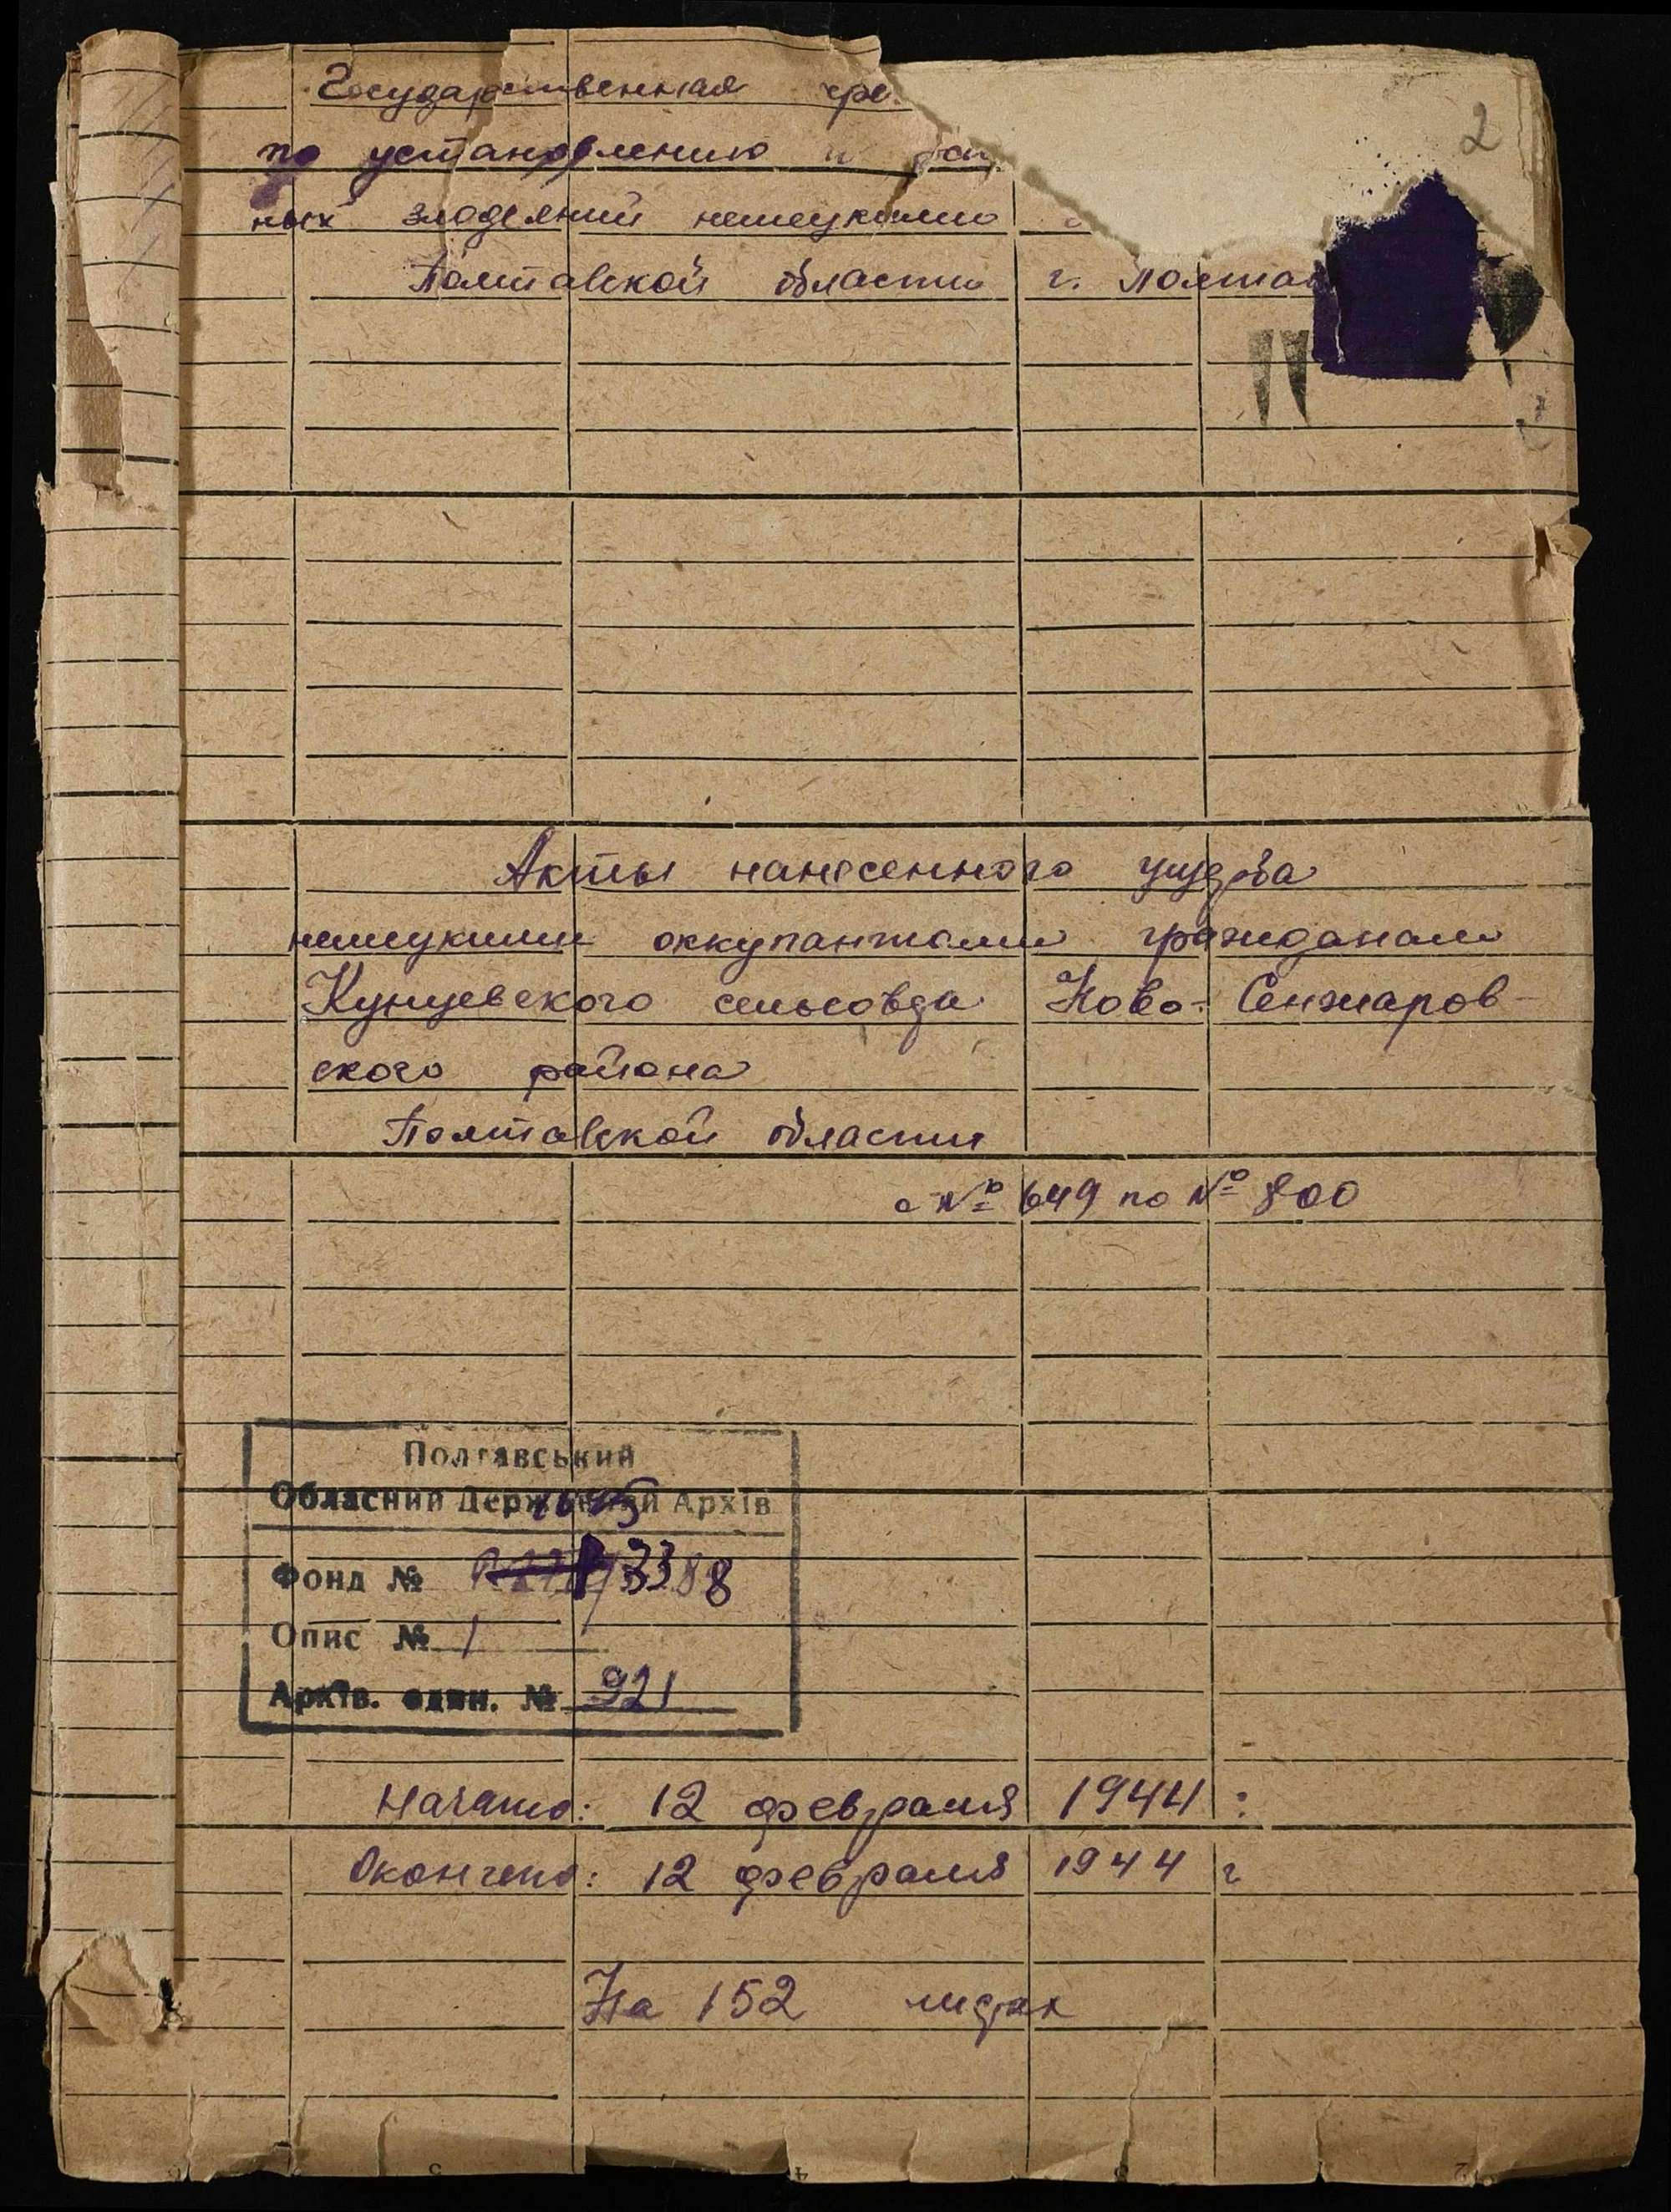 2
Государственная чре
по установлению и
ных злодеяний немецкими
Полтавской области г. Полтав
Акты нанесенного ущерба
немецкими оккупантами гражданам
Кунцевского сельсовда Ново-Сенжаров-
ского района
Полтавской области
с № 649 по № 800
Полтавський
Обласний Державний Архів
Фонд № 3388
Опис № 1
Архів. один. № 921
Начато: 12 февраля 1944 г
Окончено: 12 февраля 1944 г
На 152 листах